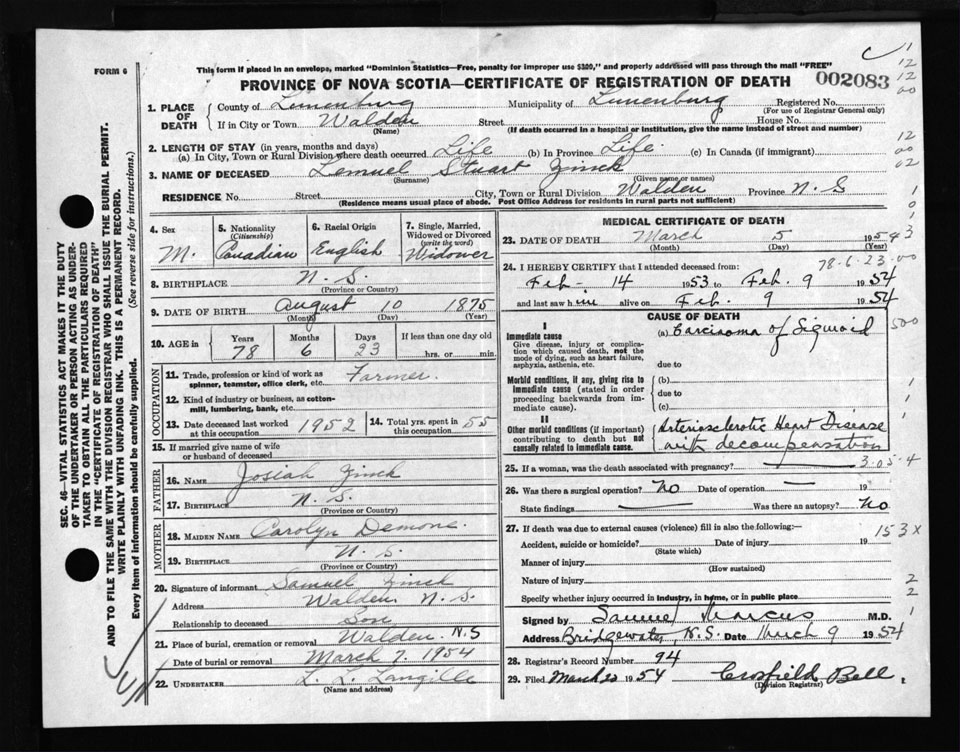 This form if placed in an envelope, marked "Dominion Statistics—Free, penalty for improper use $300," and properly addressed will pass through the mail "FREE"
FORM 6
PROVINCE OF NOVA SCOTIA—CERTIFICATE OF REGISTRATION OF DEATH
002083
1. PLACE OF DEATH
County of Lunenburg Municipality of Lunenburg Registered No.
(For use of Registrar General only)
If in City or Town Walden Street House No.
(Name) (If death occurred in a hospital or institution, give the name instead of street and number)
2. LENGTH OF STAY (in years, months and days)
(a) In City, Town or Rural Division where death occurred Life (b) In Province Life. (c) In Canada (if immigrant)
3. NAME OF DECEASED Lemuel Stuart Zinck
(Surname) (Given name or names)
RESIDENCE No. Street City, Town or Rural Division Walden Province N.S
(Residence means usual place of abode. Post Office Address for residents in rural parts not sufficient)
4. Sex
M.
5. Nationality
(Citizenship)
Canadian
6. Racial Origin
English
7. Single, Married, Widowed or Divorced
(write the word)
Widower
8. BIRTHPLACE N.S.
(Province or Country)
9. DATE OF BIRTH August 10 1875
(Month) (Day) (Year)
10. AGE in
Years Months Days If less than one day old
78 6 23 hrs. or min.
OCCUPATION
11. Trade, profession or kind of work as Farmer.
spinner, teamster, office clerk, etc.
12. Kind of industry or business, as cotton-
mill, lumbering, bank, etc.
13. Date deceased last worked at this occupation 1952
14. Total yrs. spent in this occupation 55
15. If married give name of wife
or husband of deceased
FATHER
16. NAME Josiah Zinck
17. BIRTHPLACE N.S.
(Province or Country)
MOTHER
18. MAIDEN NAME Carolyn Demone.
19. BIRTHPLACE N.S.
(Province or Country)
20. Signature of informant Samuel Zinck
Address Walden N.S.
Relationship to deceased Son
21. Place of burial, cremation or removal Walden. N.S
Date of burial or removal March 7. 1954
22. UNDERTAKER L. L. Langille
(Name and address)
MEDICAL CERTIFICATE OF DEATH
23. DATE OF DEATH March 5 1954
(Month) (Day) (Year)
78-6-23-00
24. I HEREBY CERTIFY that I attended deceased from:
Feb- 14 1953 to Feb. 9 1954
and last saw him alive on Feb. 9 1954
CAUSE OF DEATH
I
Immediate cause
Give disease, injury or complication which caused death, not the mode of dying, such as heart failure, asphyxia, asthenia, etc.
(a) Carcinoma of Sigmoid
due to
Morbid conditions, if any, giving rise to immediate cause (stated in order proceeding backwards from immediate cause).
(b)
due to
(c)
II
Other morbid conditions (if important) contributing to death but not causally related to immediate cause.
Arteriosclerotic Heart Disease
with decompensation
25. If a woman, was the death associated with pregnancy?
3.05.4
26. Was there a surgical operation? No Date of operation — 19
State findings — Was there an autopsy? No
27. If death was due to external causes (violence) fill in also the following:—
153X
Accident, suicide or homicide? Date of injury 19
(State which)
Manner of injury
(How sustained)
Nature of injury
Specify whether injury occurred in industry, in home, or in public place
Signed by Samuel Marcus M.D.
Address Bridgewater, N.S. Date March 9 1954
28. Registrar's Record Number 94
29. Filed March 22 1954 Crosfield Bell
(Division Registrar)
SEC. 46—VITAL STATISTICS ACT MAKES IT THE DUTY
OF THE UNDERTAKER OR PERSON ACTING AS UNDER-
TAKER TO OBTAIN ALL THE PARTICULARS REQUIRED
IN THE "CERTIFICATE OF REGISTRATION OF DEATH"
AND TO FILE THE SAME WITH THE DIVISION REGISTRAR WHO SHALL ISSUE THE BURIAL PERMIT.
WRITE PLAINLY WITH UNFADING INK. THIS IS A PERMANENT RECORD.
Every item of information should be carefully supplied. (See reverse side for instructions.)